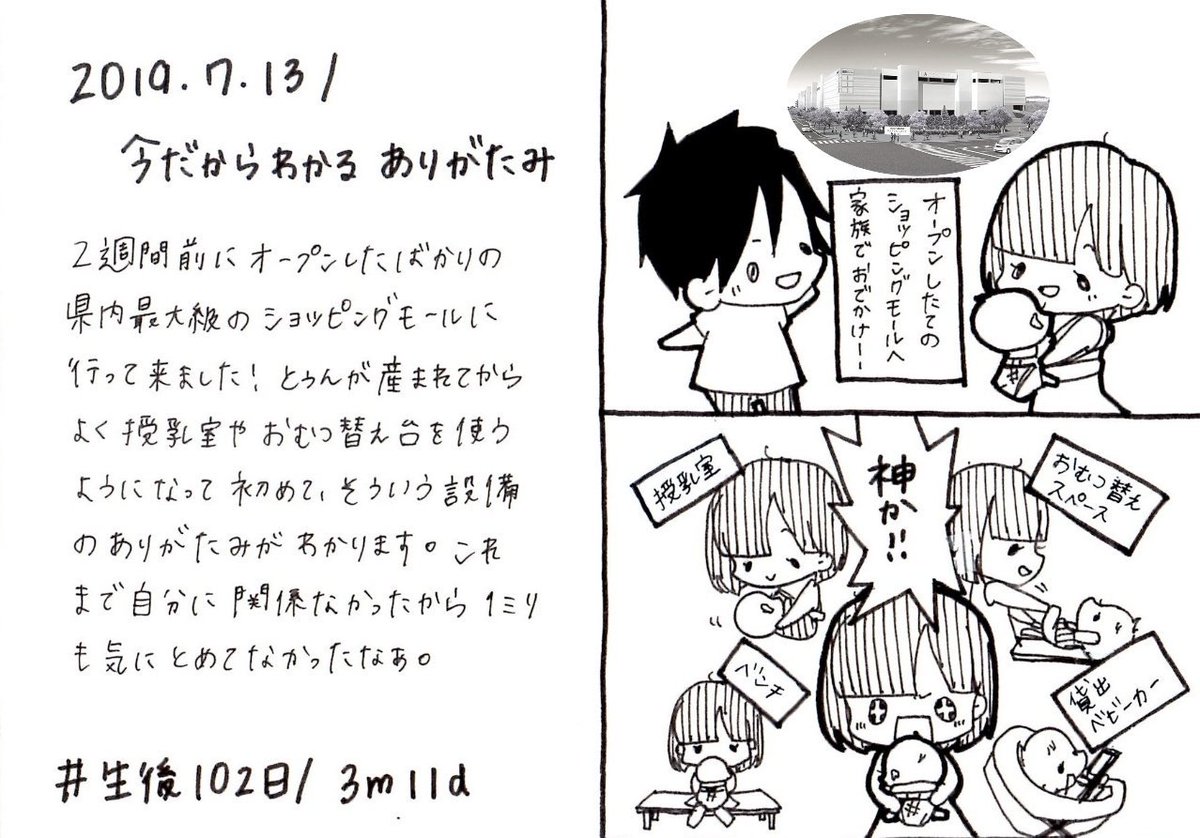 2019.7.13/
今だからわかる ありがたみ
2週間前に オープンしたばかりの
県内最大級の ショッピングモールに
行って来ました! とぅんが産まれてから
よく授乳室や おむつ替え台を使う
ようになって 初めて、そういう設備
のありがたみが わかります。これ
まで自分に関係なかったから 1ミリ
も気に とめてなかったなぁ。
#生後102日/ 3m11d
オープンしたての
ショッピングモールへ
家族でおでかけー!
授乳室
神か!!
おむつ替え
スペース
ベンチ
貸出
ベビーカー